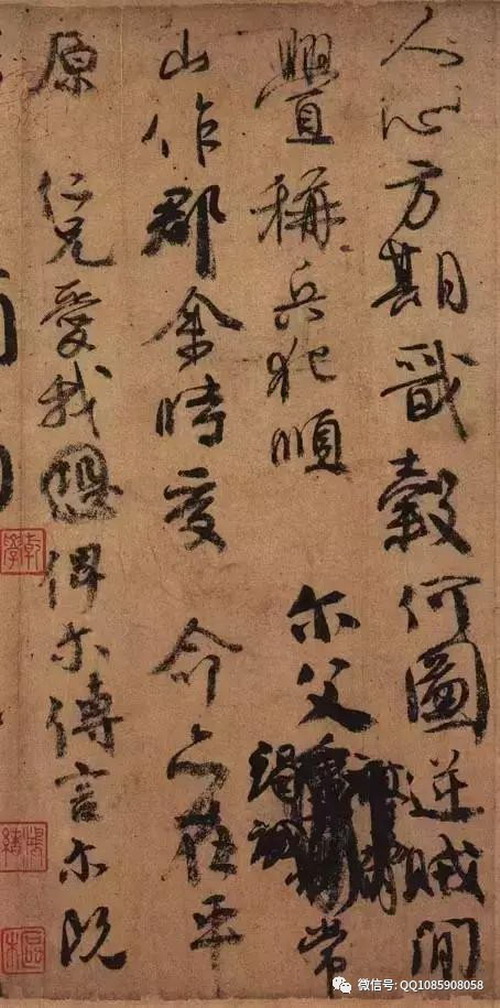 人心方期戩穀何圖逆賊間
釁稱兵犯順 尓父 常
山作郡余時受 命亦在平
原 仁兄愛我俾尓傳言尓既
乾學
鴻緒
微信号: QQ1085908058